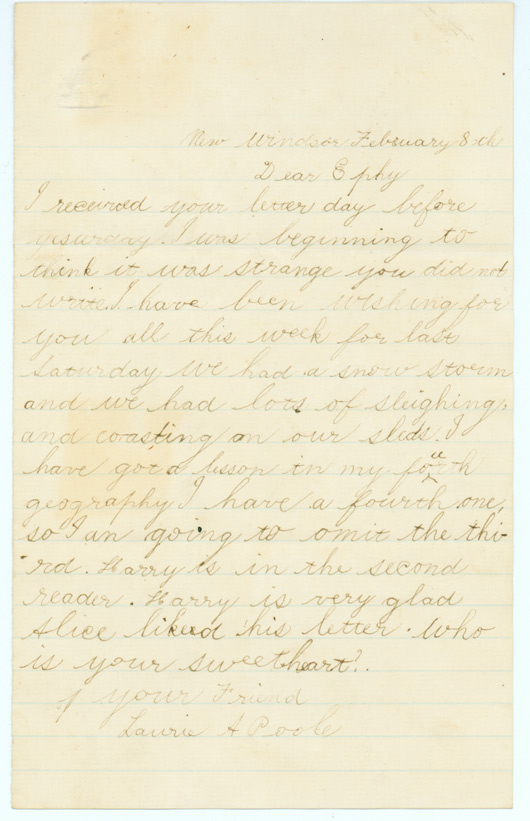 New Windsor February 8th
Dear Ephy
I received your letter day before
yesurday. I was beginning to
think it was strange you did not
write. I have been wishing for
you all this week for last
Saturday we had a snow storm
and we had lots of sleighing,
and coasting on our sleds. I
have got a lesson in my fouth
geography I have a fourth one,
so I an going to omit the thi-
rd. Harry is in the second
reader. Harry is very glad
Alice liked his letter. Who
is your sweetheart?.
your Friend
Laurie A Poole